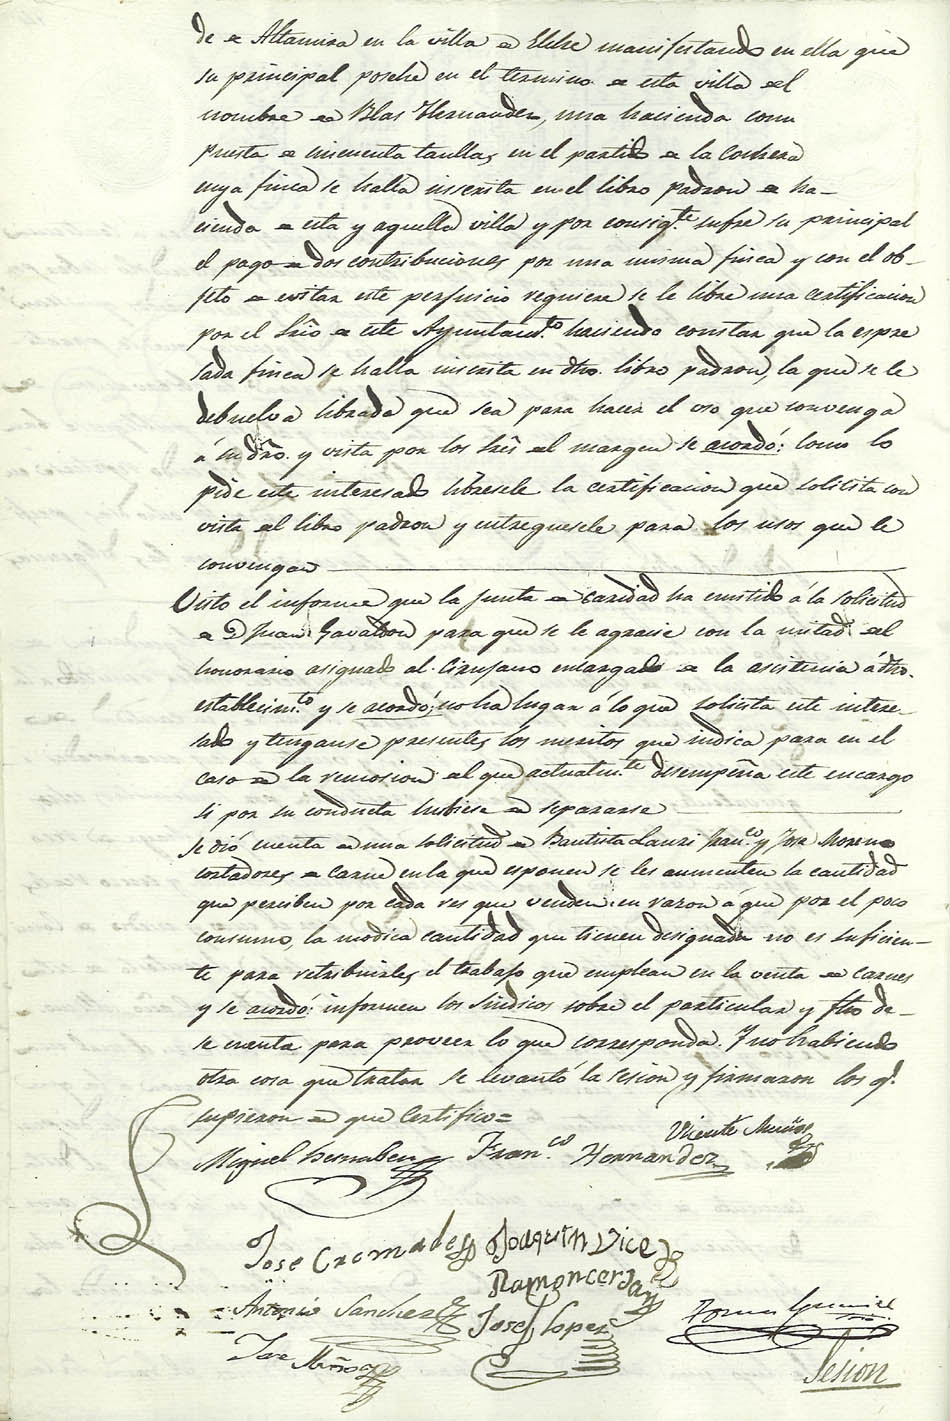 de Altamira en la villa de Elche manifestando en ella que
su principal posehe en el termino de esta villa del
nombre de Blas Hernandez, una hacienda com
puesta de cincuenta taullas en el partido de la Cochera
cuya finca se halla inscrita en el libro padron de ha-
cienda de esta y aquella villa y por consigte. sufre su principal
el pago de dos contribuciones por una misma finca y con el ob-
jeto de evitar este perjuicio requiere se le libre una certificacion
por el Srio de este Ayuntamto. haciendo constar que la espre
sada finca se halla inscrita en dho. libro padron, la que se le
debuelva librada que sea para hacer el uso que convenga
á su dro. y vista por los Sres del margen se acordó: Como lo
pide este interesado libresele la certificacion que solicita con
vista del libro padron y entreguesele para los usos que le
convengan
Visto el informe que la Junta de Caridad ha emitido á la solicitud
de D Juan Gavaldon para que se le agracie con la mitad del
honorario asignado al Cirujano encargado de la asistencia á dho.
establecimto. y se acordó; no ha lugar á lo que solicita este intere-
sado y tenganse presentes los meritos que indica para en el
caso de la remosion del que actualmte. desempeña este encargo
si por su conducta hubiese de separarse
Se dió cuenta de una solicitud de Bautista Lauri Franco. y Jose Moreno
cortadores de carne en la que esponen se les aumenten la cantidad
que perciben por cada res que venden en razon á que por el poco
consumo, la modica cantidad que tienen designada no es suficien-
te para retribuirles el trabajo que emplean en la venta de carnes
y se acordó: informen los Sindicos sobre el particular y fho de-
se cuenta para proveer lo que corresponda. Y no habiendo
otra cosa que tratar se levantó la sesion y firmaron los q.
supieron de que Certifico=
Vicente Muñoz
Miguel Bernabeu Franco. Hernandez
Jose Cremades Joaquin Vice
Ramon Cerdan
Antonio Sanchez Josef Lopez
Jose Muñoz
Sesion